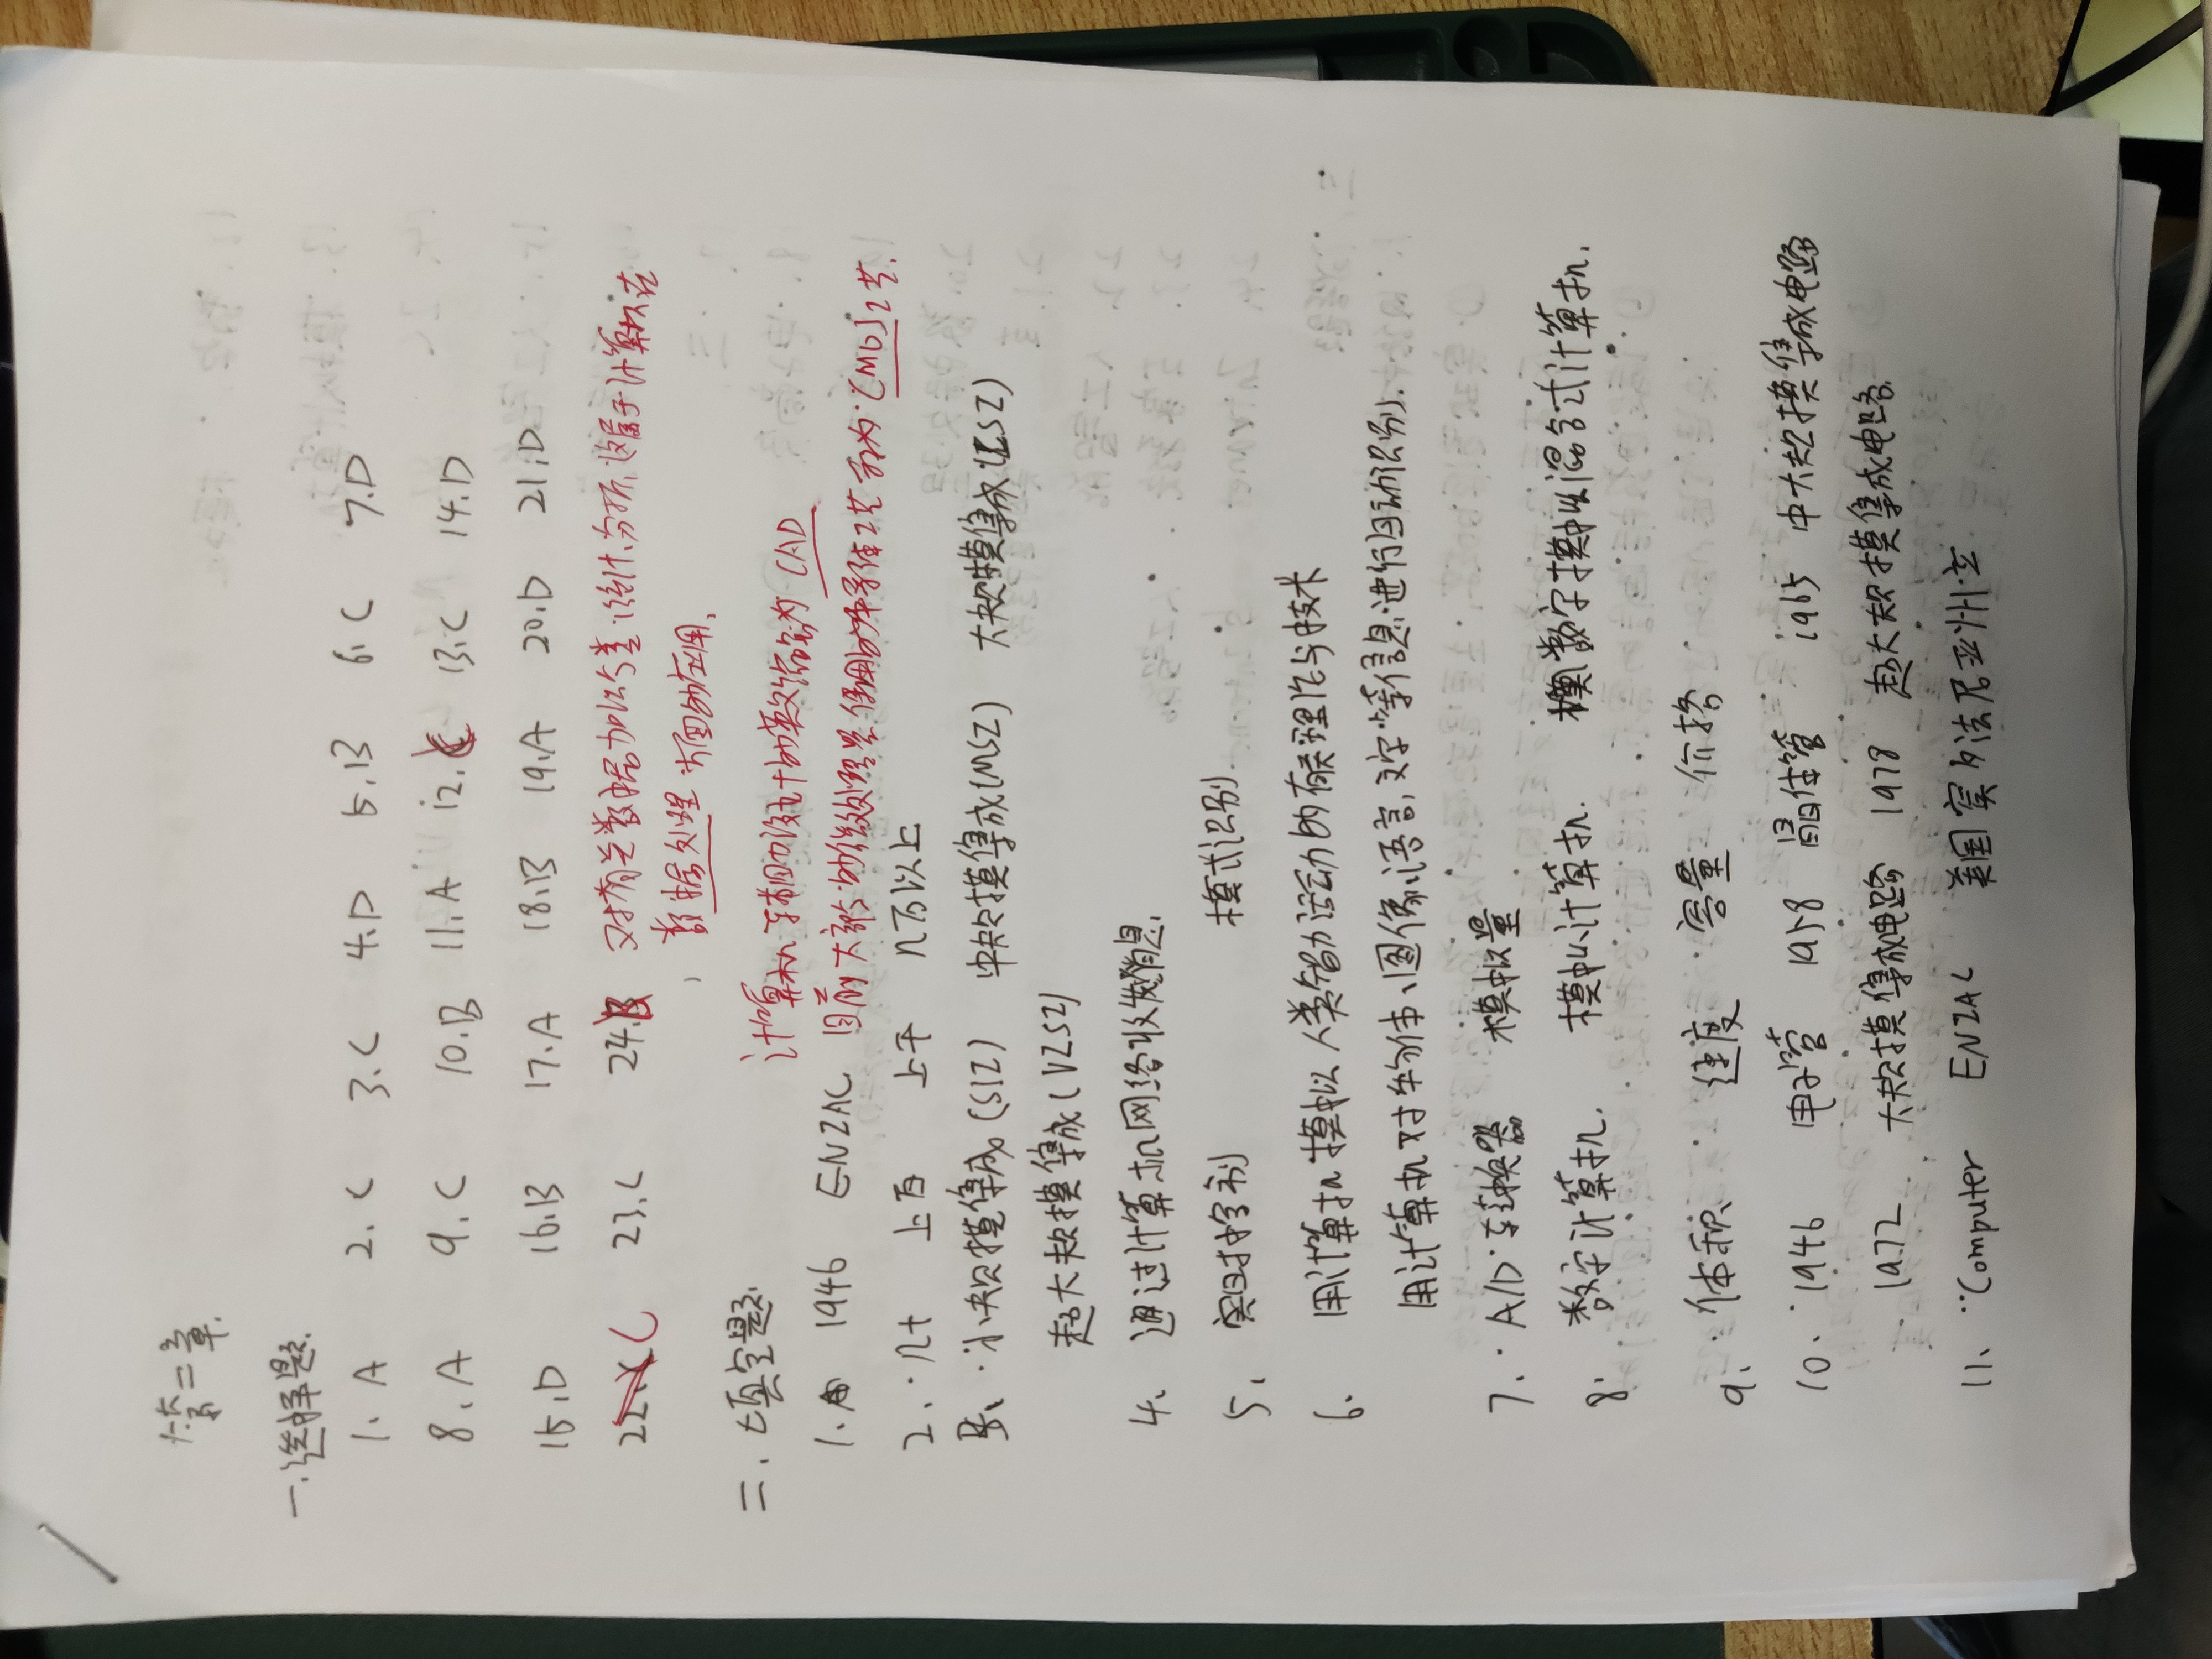 第二章.
一.选择题.
1. A 2. C 3. C 4. D 5. B 6. C 7. D
8. A 9. C 10. B 11. A 12. 13. C 14. D
15. D 16. B 17. A 18. B 19. A 20. D 21. D
22. C 23. C 24. 对有关数据加以分类、统计、分析,这属于计算机在
数据处理方面的应用.
二、填空题.
计算机辅助设计的英文缩写为 CAD
1. 1946 ENZAC
目前大部分的微处理器使用的半导体工艺称为 CMOS工艺.
2、几十 上百 上千 几万以上
3、小规模集成(SIZ) 中规模集成(MSZ) 大规模集成(ZSZ)
超大规模集成(VZSZ)
4、通过计算机网络收发消息.
5、实时控制 模式识别
6. 用计算机模拟人类智力活动的有关理论与技术
用计算机对物体、图像、语言,文字等信息进行自动识别.
7. A/D转换器 模拟量
8. 数字计算机. 模拟计算机. 数字模拟混合式计算机.
9. 体积 速度 容量 价格
10. 1946 电子管 1958 晶体管 1965 中大规模集成电路
1972 大规模集成电路 1978 超大规模集成电路.
11、Computer ENZAC 美国宾夕法尼亚州立